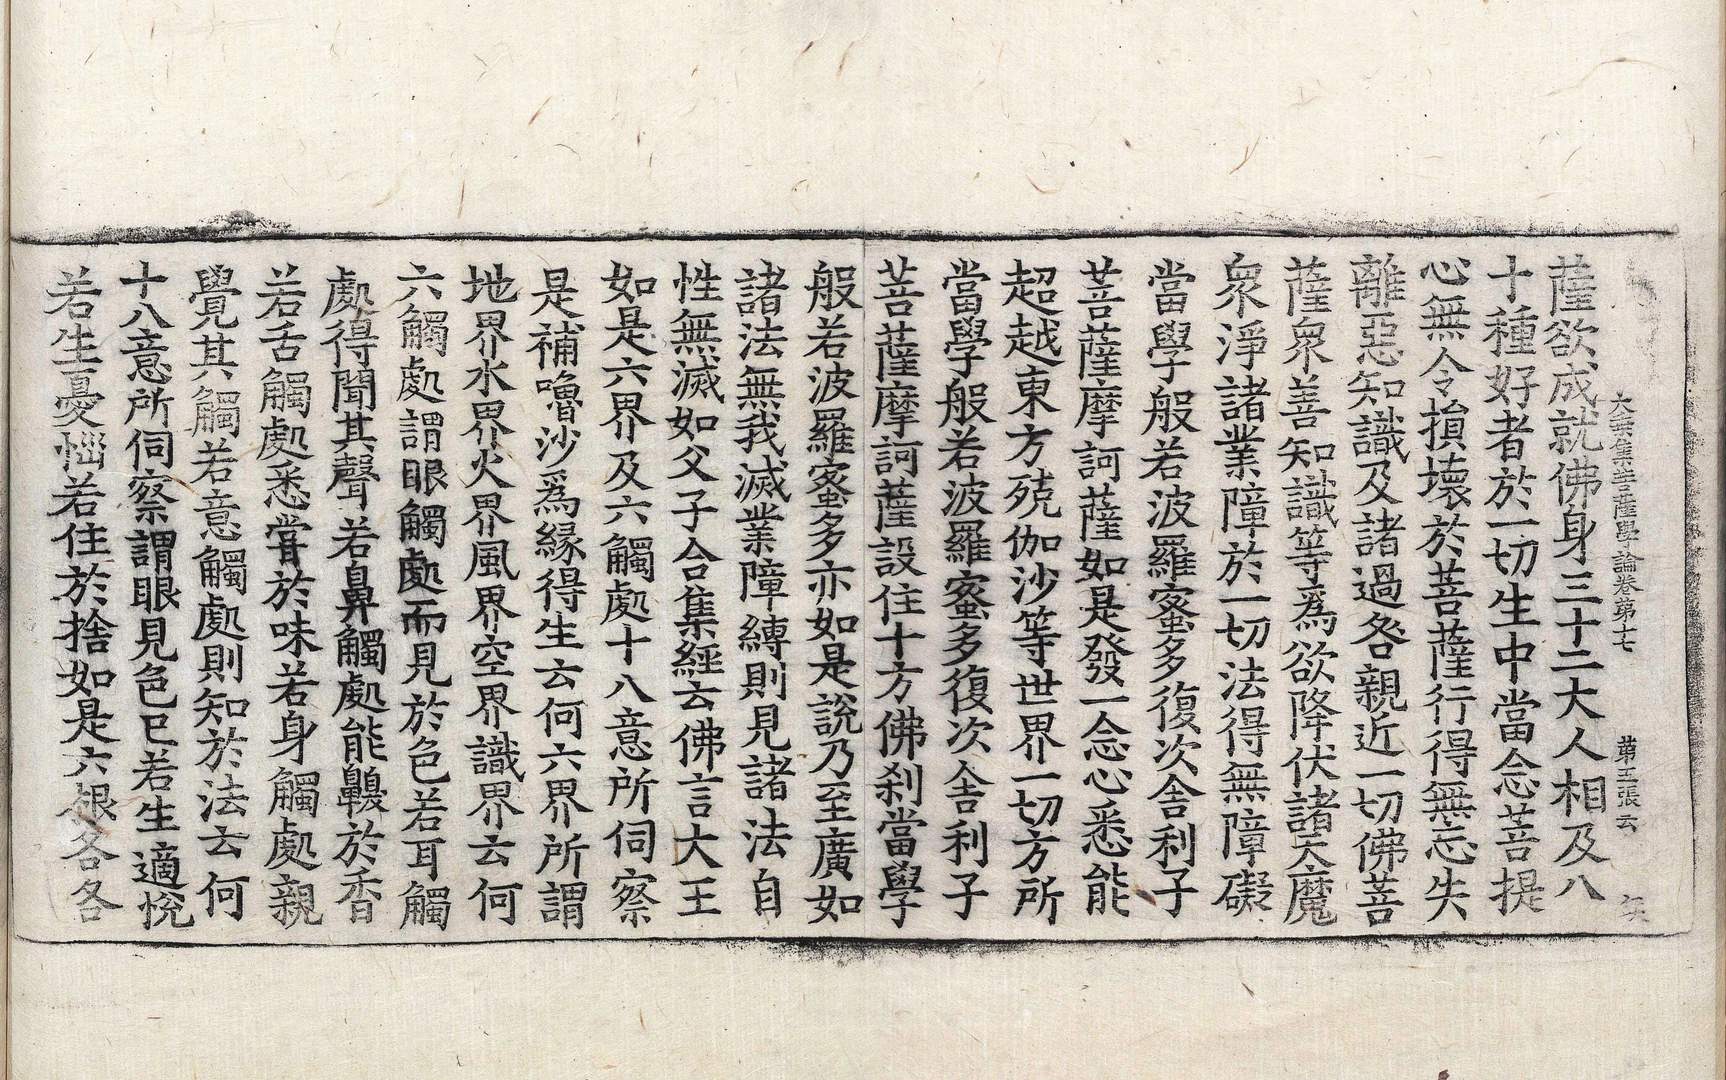 大乘集菩薩學論卷第十七 第五張 云
薩欲成就佛身三十二大人相及八
十種好者於一切生中當念菩提
心無令損壞於菩薩行得無忘失
離惡知識及諸過咎親近一切佛菩
薩衆善知識等爲欲降伏諸天魔
衆淨諸業障於一切法得無障礙
當學般若波羅蜜多復次舍利子
菩薩摩訶薩如是發一念心悉能
超越東方殑伽沙等世界一切方所
當學般若波羅蜜多復次舍利子
菩薩摩訶薩設住十方佛刹當學
般若波羅蜜多亦如是說乃至廣如
諸法無我滅業障縛則見諸法自
性無滅如父子合集經云佛言大王
如是六界及六觸處十八意所伺察
是補嚕沙爲緣得生云何六界所謂
地界水界火界風界空界識界云何
六觸處謂眼觸處而見於色若耳觸
處得聞其聲若鼻觸處能齅於香
若舌觸處悉甞於味若身觸處親
覺其觸若意觸處則知於法云何
十八意所伺察謂眼見色已若生適悅
若生憂惱若住於捨如是六根各各